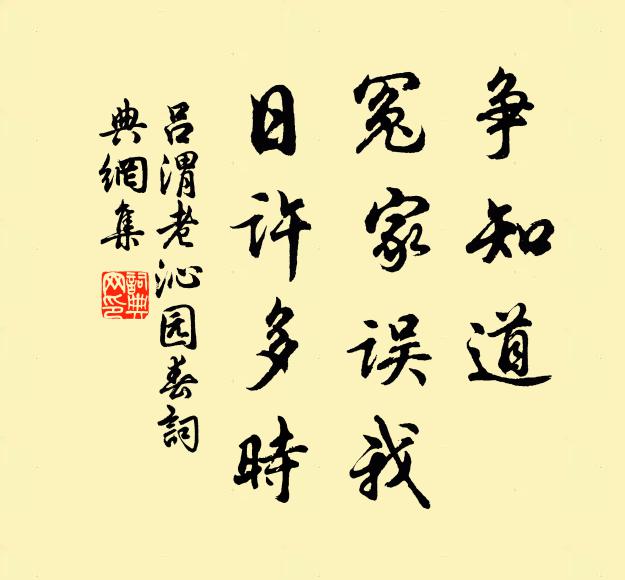 争知道
冤家误我
日许多時
吕渭老沁园春詞
典網集
詞典网印